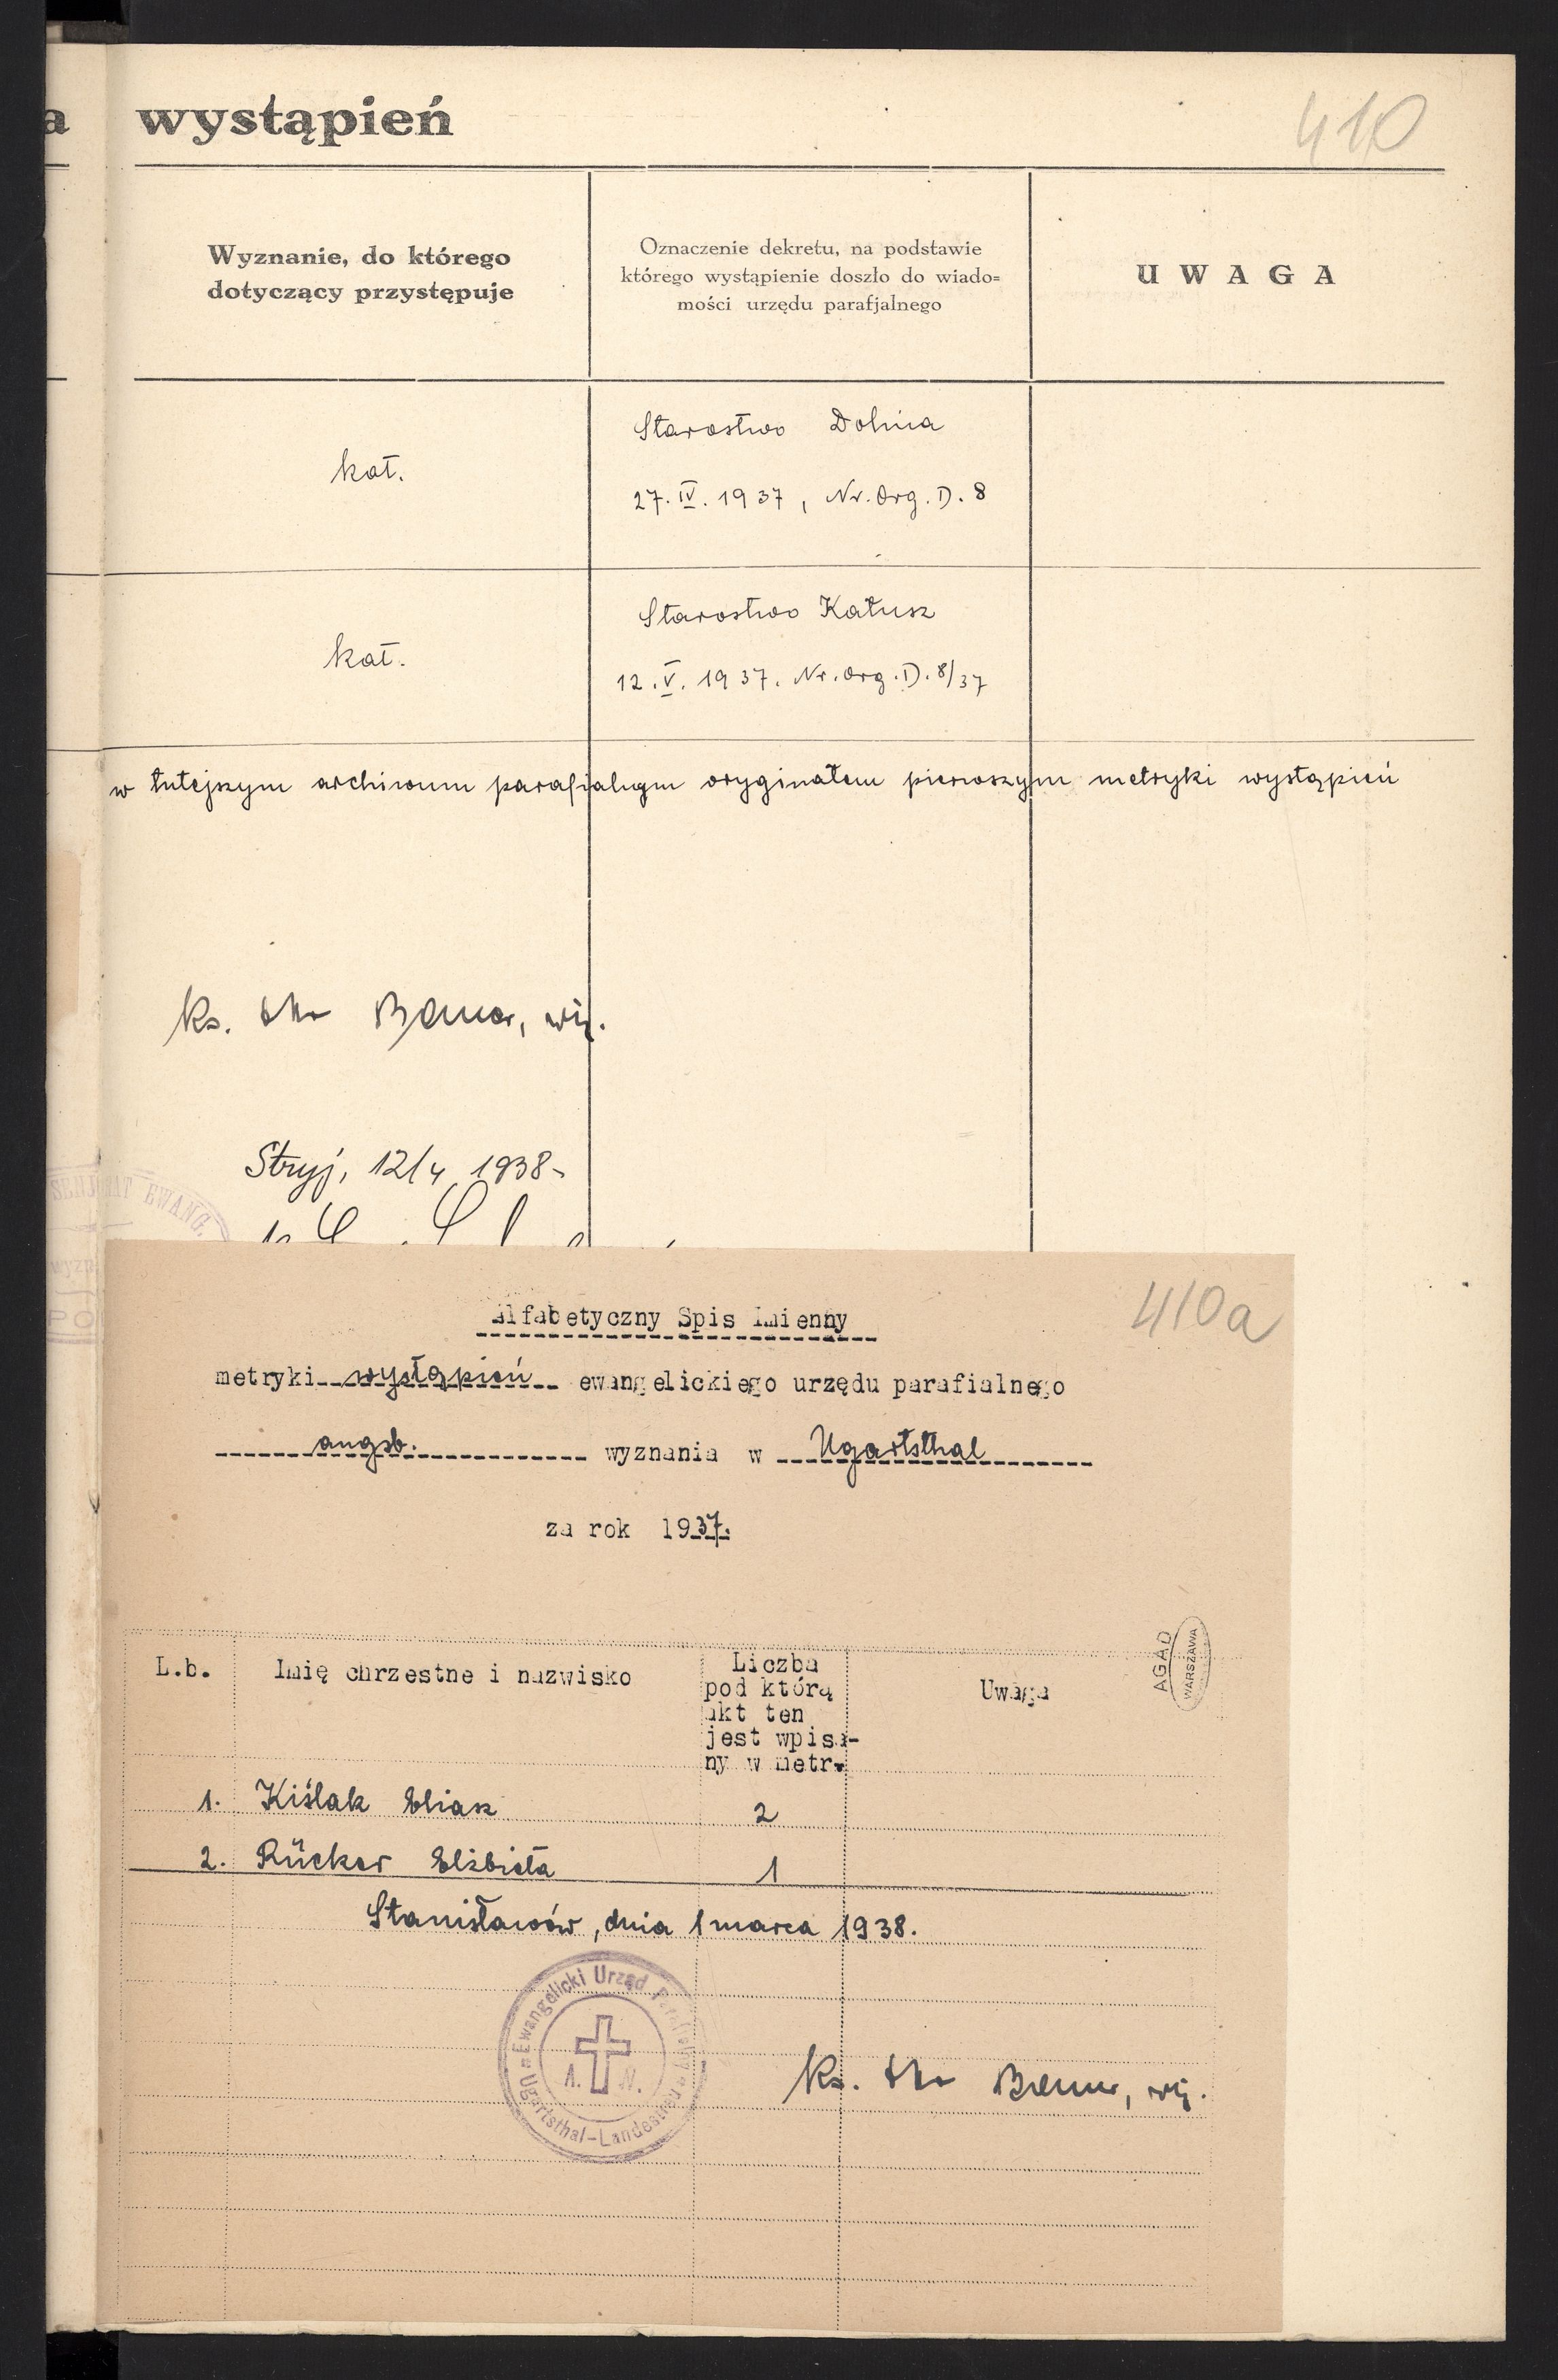 a wystąpień
410
Wyznanie, do którego
dotyczący przystępuje
Oznaczenie dekretu, na podstawie
którego wystąpienie doszło do wiado=
mości urzędu parafjalnego
UWAGA
kat.
Starostwo Dolina
27. IV. 1937, Nr. Org. D. 8
kat.
Starostwo Kałusz
12. V. 1937. Nr. Org. D. 8/37
w tutejszym archiwum parafialnym oryginałem pierwszym metryki wystąpień
ks.
Stryj, 12/4 1938
EWANG.
Alfabetyczny Spis Imienny
410a
metryki wystąpień ewangelickiego urzędu parafialnego
augsb. wyznania w Ugartsthal
za rok 1937.
AGAD
WARSZAWA
L.b.
Imię chrzestne i nazwisko
Liczba
pod którą
akt ten
jest wpisa-
ny w metr.
Uwaga
1. Kiślak Eliasz 2
2. Rücker Elżbieta 1
Stanisławów, dnia 1 marca 1938.
Ewangelicki Urząd Parafialny
Ugartsthal-Landestreu
A. W.
ks.